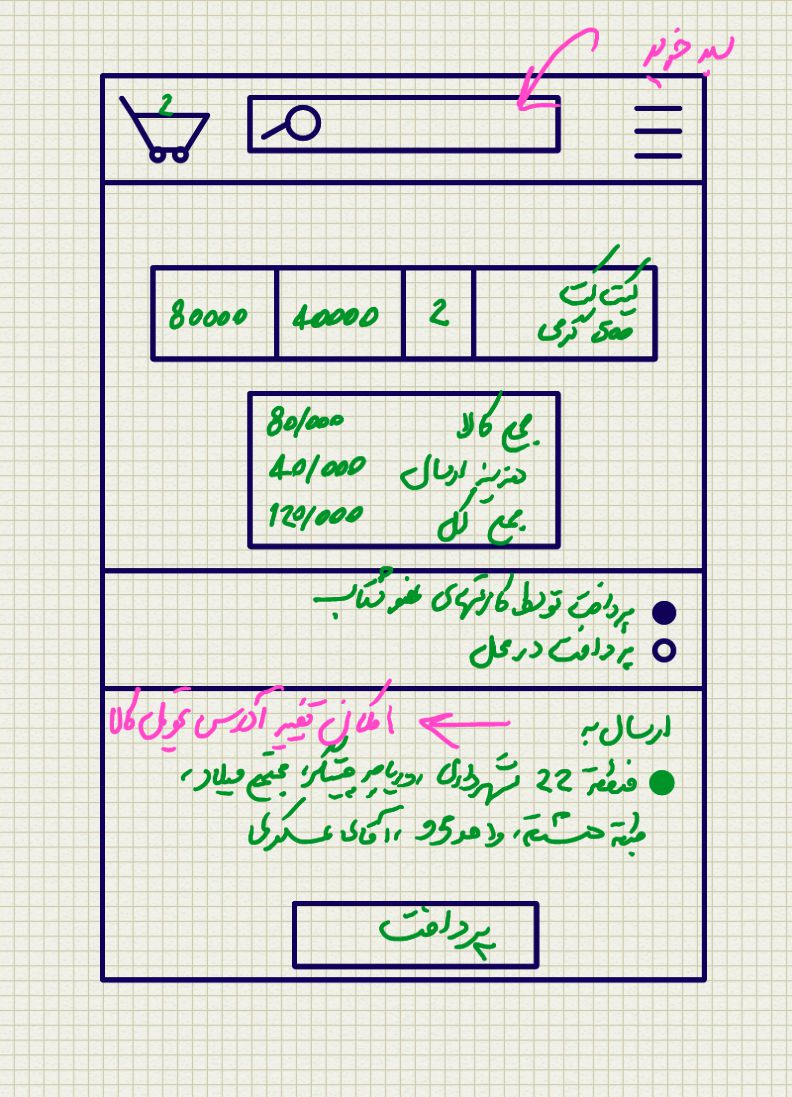 سبد خرید
2
کیت کت
500 گرمی
2
40000
80000
جمع کالا 80/000
هزینه ارسال 40/000
جمع کل 120/000
پرداخت توسط کارتهای عضو شتاب
پرداخت در محل
ارسال به
امکان تغییر آدرس تحویل کالا
منطقه 22 شهرداری، دریاچه چیتگر، مجتمع میلاد،
طبقه هشتم، واحد، آقای عسکری
پرداخت